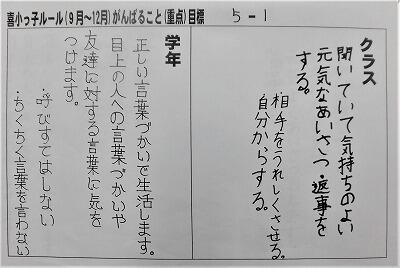 喜小っ子ルール(9月～12月)がんばること(重点)目標
5-1
クラス
聞いていて気持ちのよい
元気なあいさつ・返事を
する。
・相手をうれしくさせる。
自分からする。
学年
正しい言葉づかいで生活します。
目上の人への言葉づかいや
友達に対する言葉に気を
つけます。
・呼びすてはしない
・ちくちく言葉を言わない